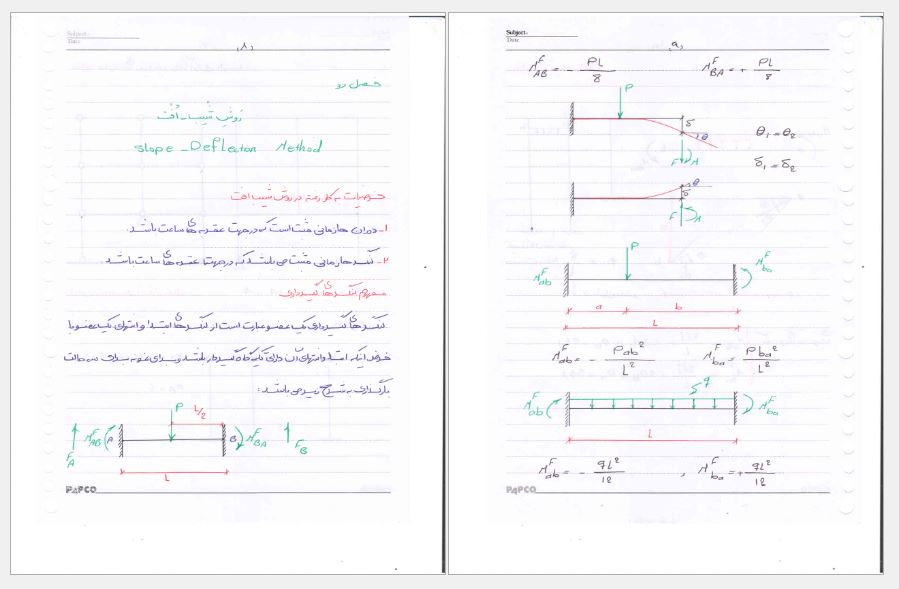 Subject:
Date
(۸)
فصل دو
روش شیب - اُفت
Slope - Deflection Method
فرضیات به کار رفته در روش شیب افت
۱- دوران ها زمانی مثبت است که در جهت عقربه های ساعت باشد.
۲- لنگرها زمانی مثبت می باشند که در جهت عقربه های ساعت باشد.
مفهوم لنگرهای گیرداری
لنگرهای گیرداری یک عضو عبارت است از لنگرهای ابتدا و انتهای یک عضو با
فرض اینکه ابتدا و انتهای آن دارای تکیه گاه گیردار باشند و برای نمونه برای سه حالت
بارگذاری به شرح زیر می باشند:
P L/2
F_A M^F_AB A B M^F_BA F_B
L
PAPCO
Subject:
Date
(۹)
M^F_AB = - PL/8 M^F_BA = + PL/8
P
δ θ θ₁ = θ₂
F M δ₁ = δ₂
θ
δ
F M
P
M^F_ab M^F_ba
a b
L
M^F_ab = - Pab²/L² M^F_ba = Pba²/L²
q
M^F_ab M^F_ba
L
M^F_ab = - qL²/12 , M^F_ba = + qL²/12
PAPCO